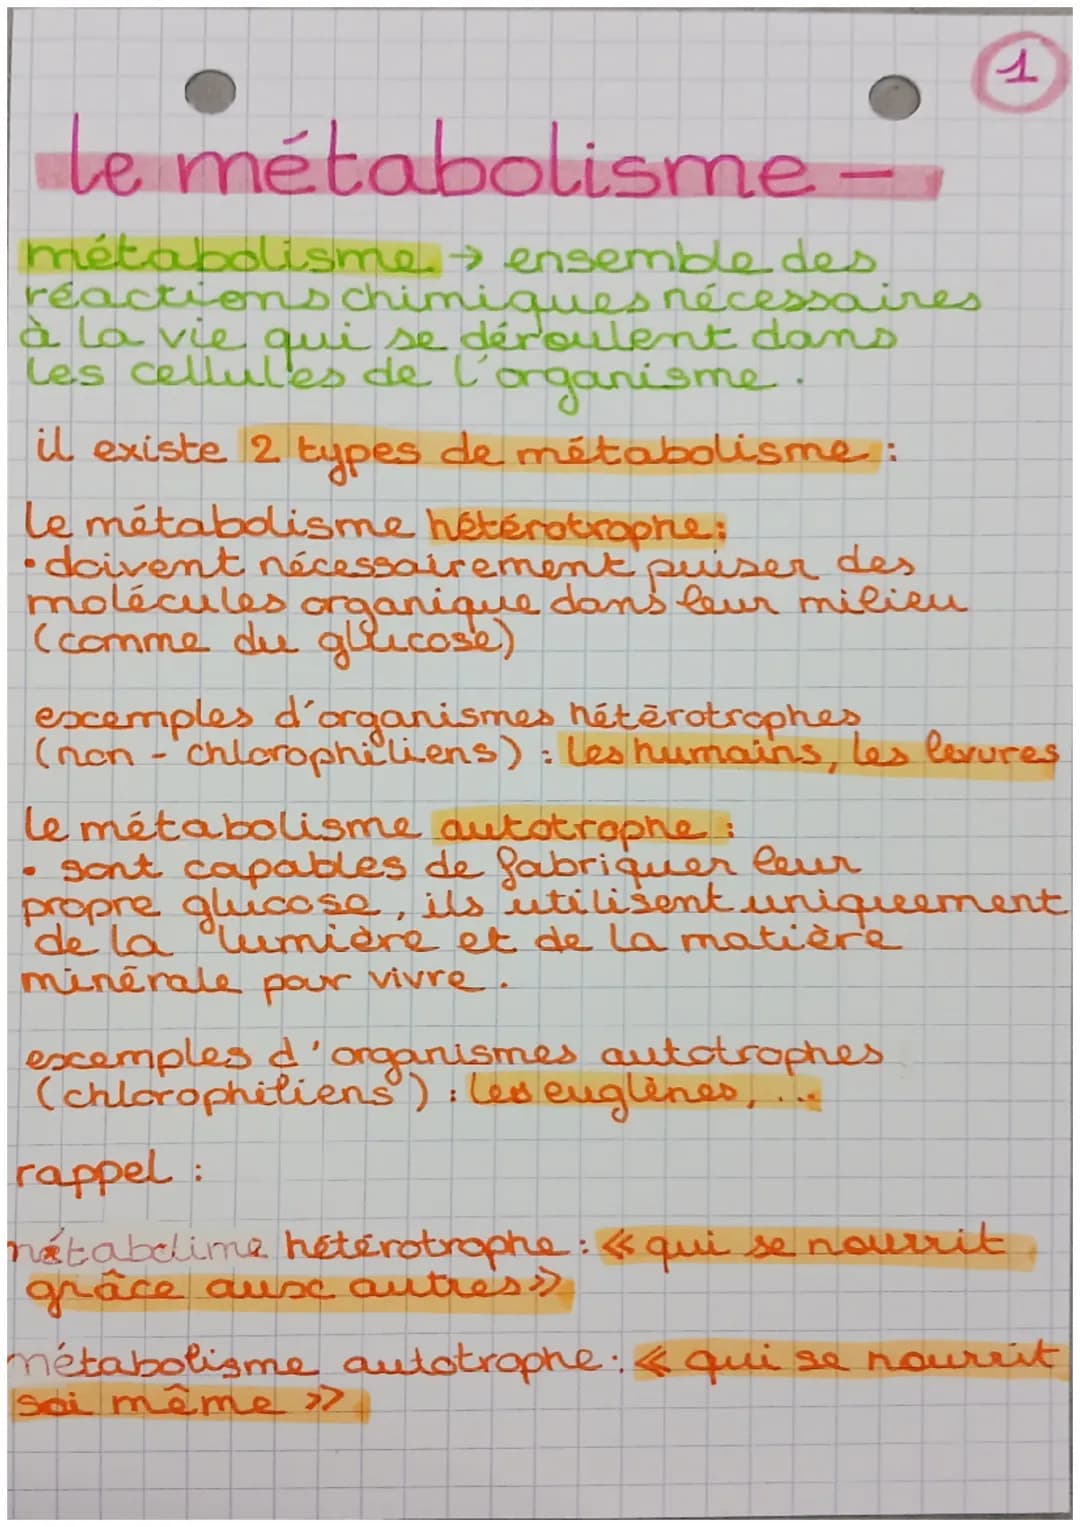 1
le métabolisme -
métabolisme → ensemble des
réactions chimiques nécessaires
à la vie qui se déroulent dans
les cellules de l'organisme.
il existe 2 types de métabolisme :
le métabolisme hétérotrophe :
• doivent nécessairement puiser des
molécules organique dans leur milieu
(comme du glucose)
exemples d'organismes hétérotrophes
(non - chlorophiliens) : les humains, les levures
le métabolisme autotrophe :
• sont capables de fabriquer leur
propre glucose, ils utilisent uniquement
de la lumière et de la matière
minérale pour vivre.
exemples d'organismes autotrophes
(chlorophiliens) : les euglènes, ...
rappel :
métabolime hétérotrophe : « qui se nourrit
grâce aux autres »
métabolisme autotrophe : « qui se nourrit
soi même »